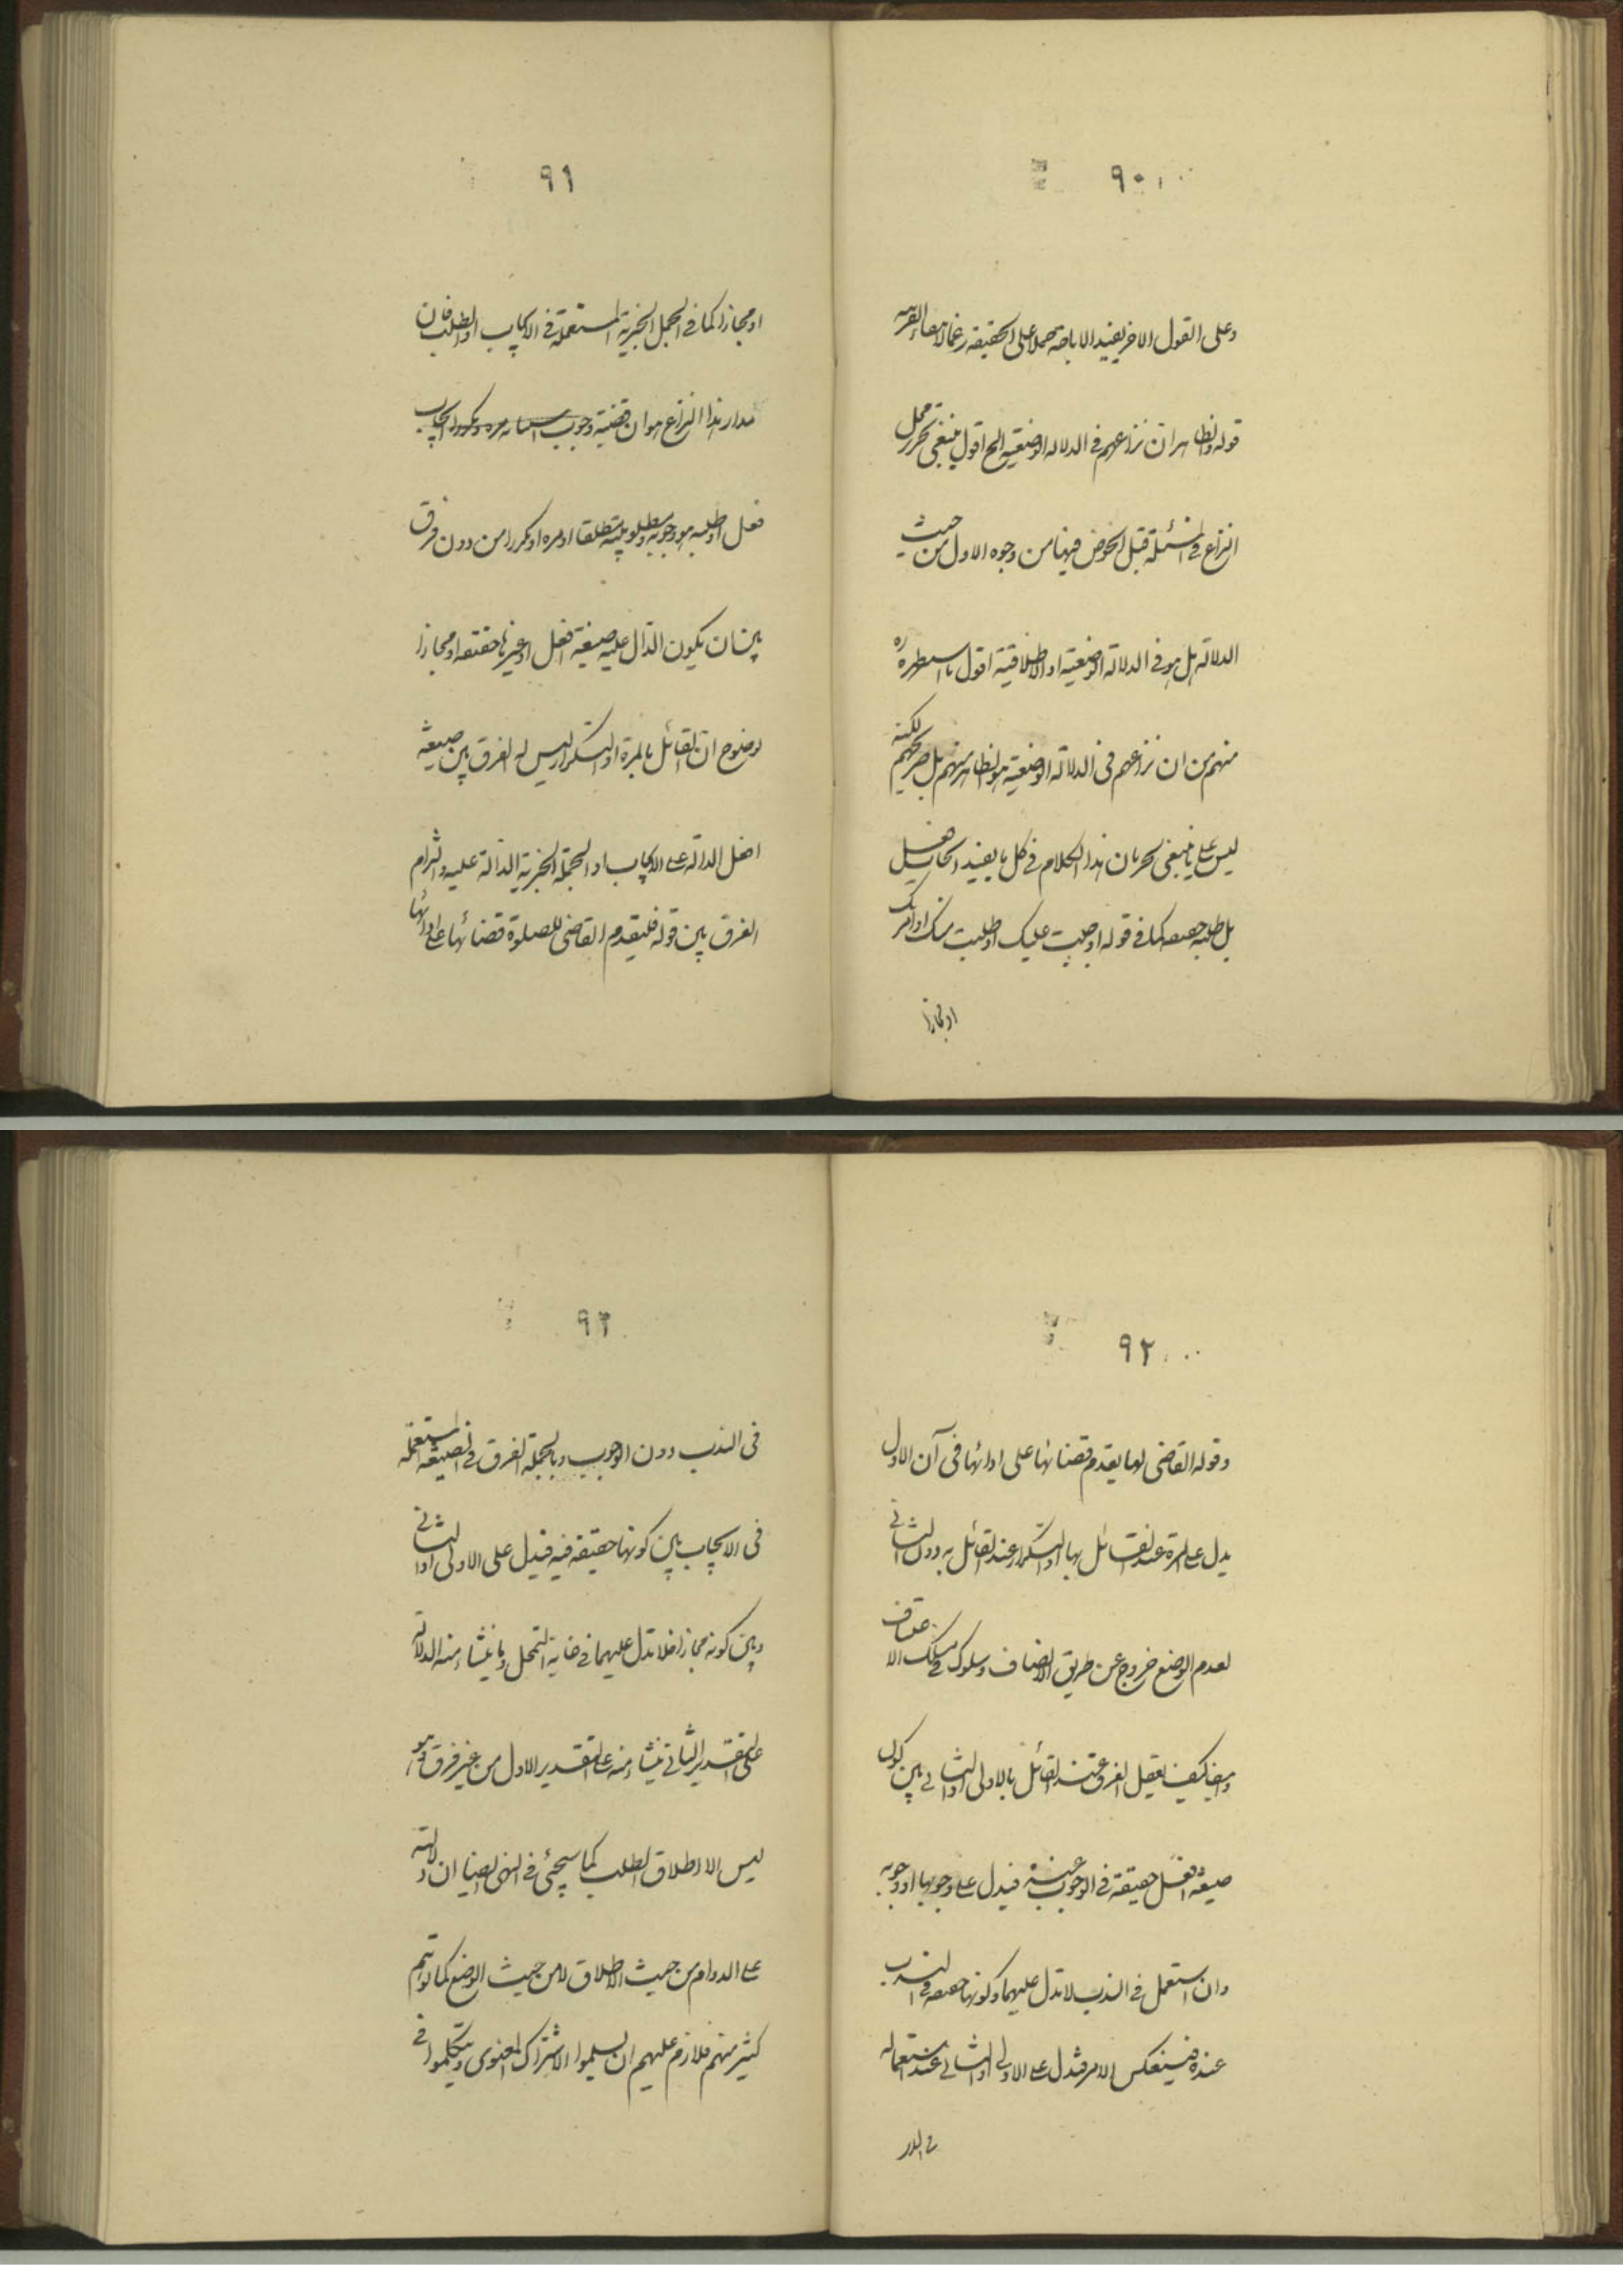 ٩٠
وعلى القول الاخر يفيد الاباحة حملا على الحقيقة زعما لانتفاء القرينة
قوله والظاهر ان نزاعهم في الدلالة الوضعية الخ اقول ينبغي تحرير محل
النزاع في المسئلة قبل الخوض فيها من وجوه الاول من حيث
الدلالة هل هو في الدلالة الوضعية او الاطلاقية اقول ما استظهره ره
منهم من ان نزاعهم في الدلالة الوضعية هو الظاهر منهم بل صريحهم لكنه
ليس على ما ينبغي لجريان هذا الكلام في كل ما يفيد ايجاب فعل
بل طلبه حقيقة كما في قوله اوجبت عليك او طلبت منك او امرتك
او مجازا
٩١
او مجازا كما في الجمل الخبرية المستعملة في الايجاب او الطلب فان
مدار هذا النزاع هو ان قضية ايجاب
فعل او طلبه هو وجوبه ومطلوبيته مطلقا او مرة او مكررا من دون فرق
بين ان يكون الدال عليه صيغة افعل او غيرها حقيقة او مجازا
لوضوح ان القائل بالمرة او التكرار ليس له الفرق بين صيغة
افعل الدالة على الايجاب او الجملة الخبرية الدالة عليه والتزام
الفرق بين قوله فليقدم القاضي للصلوة قضائها على ادائها
٩٢
وقوله القاضي لها يقدم قضائها على ادائها في آن الاول
يدل على المرة عند القائل بها او التكرار عند القائل به دون الثاني
لعدم الوضع خروج عن طريق الانصاف وسلوك في مسلك الاعتساف
وايضا كيف يعقل الفرق عند القائل بالاولى او الثاني بين كون
صيغة افعل حقيقة في الوجوب عنده فيدل على وجوبها او وجوبه
وان استعمل في الندب لا تدل عليهما وكونها حقيقة في الندب
عنده فينعكس الامر فتدل على الاولى او الثاني عند استعماله
في الندب
٩٣
في الندب دون الوجوب وبالجملة الفرق في الصيغة المستعملة
في الايجاب بين كونها حقيقة فيه فيدل على الاولى او الثاني
وبين كونه مجازا فلا تدل عليهما في غاية التمحل وما ينشاء منه الدلالة
على التقدير الثاني ينشاء منه على التقدير الاول من غير فرق وهو
ليس الا اطلاق الطلب كما سيجئ في النهي ايضا ان دلالته
على الدوام من حيث الاطلاق لا من حيث الوضع كما توهم
كثير منهم فلازم عليهم ان يسلموا الاشتراك المعنوي ويتكلموا في